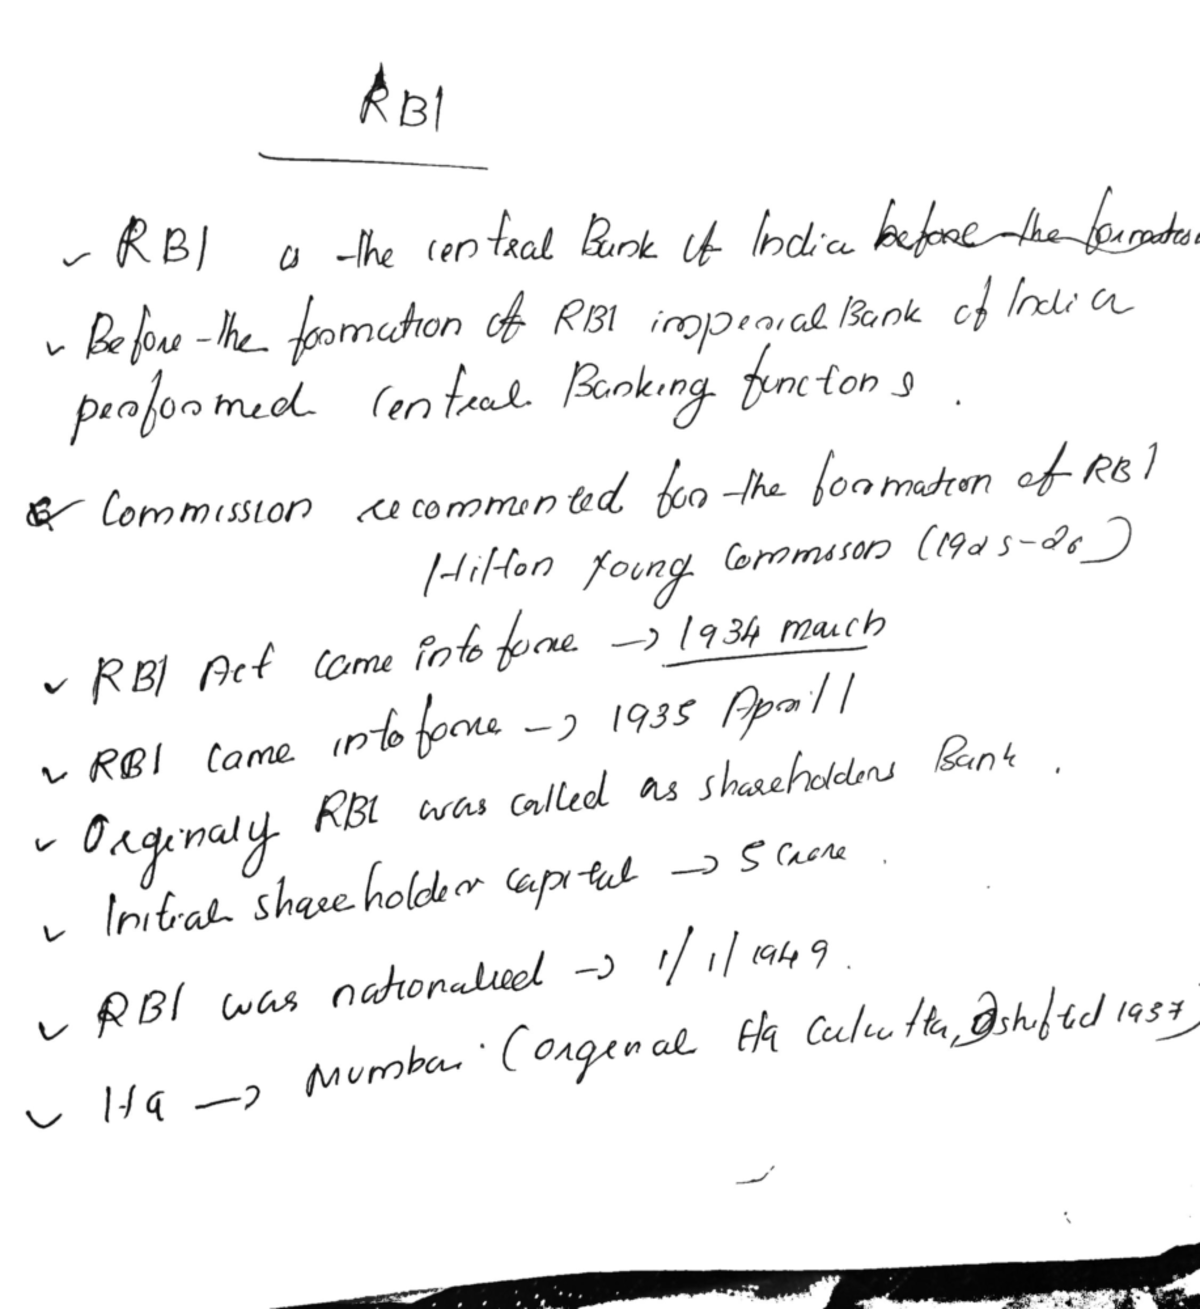 RBI
RBI is the central Bank of India before the formation
Before the formation of RBI imperial Bank of India
performed central Banking functons.
Commission recommented for the formation of RBI
Hilton Young Commsson (1925-26)
RBI Act came into force → 1934 march
RBI came into force → 1935 April 1
Orginaly RBI was called as shareholders Bank.
Initial shareholder capital → 5 crore.
RBI was nationalised → 1/1/1949.
Hq → Mumbai. (orgenal Hq Calcutta, shifted 1937)